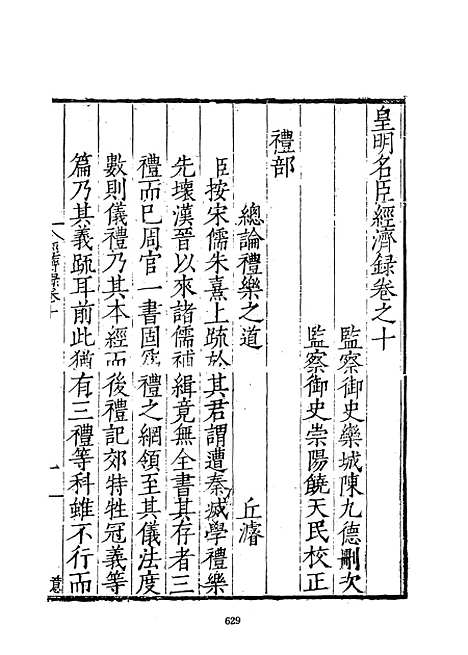 皇明名臣經濟録卷之十
監察御史欒城陳九德刪次
監察御史崇陽饒天民校正
禮部
總論禮樂之道
丘濬
臣按宋儒朱熹上䟽於其君謂遭秦滅學禮樂
先壞漢晉以來諸儒補緝竟無全書其存者三
禮而已周官一書固爲禮之綱領至其儀法度
數則儀禮乃其本經而後禮記郊特牲冠義等
篇乃其義䟽耳前此猶有三禮等科雖不行而
意
629